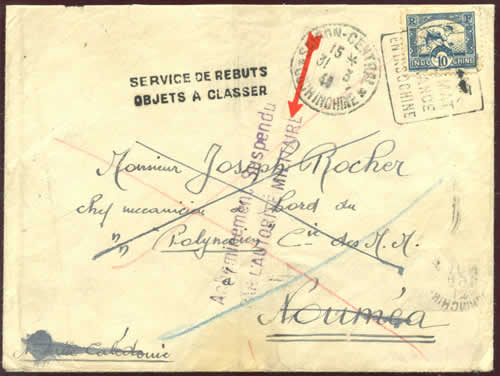 SERVICE DE REBUTS
OBJETS A CLASSER
SAIGON-CENTRAL
15 *
31 3
COCHINCHINE
RF
INDOCHINE
10
EN INDOCHINE
Acheminement Suspendu
par L'AUTORITÉ MILITAIRE
Monsieur Joseph Rocher
chef mécanicien à bord du
"Polynésien" Cie des M.M.
à
Nouméa
Nouvelle Calédonie